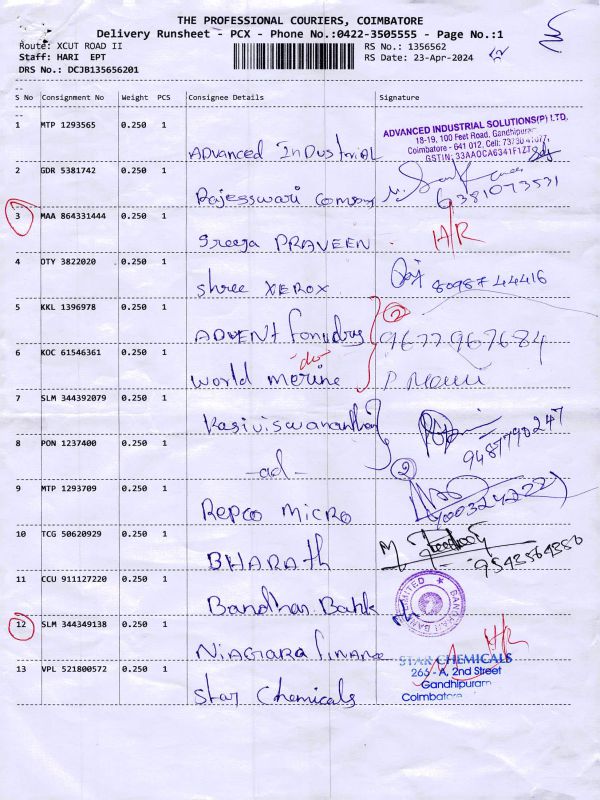 THE PROFESSIONAL COURIERS, COIMBATORE
Delivery Runsheet - PCX - Phone No.:0422-3505555 - Page No.:1
Route: XCUT ROAD II RS No.: 1356562
Staff: HARI EPT RS Date: 23-Apr-2024
DRS No.: DCJB135656201
S No Consignment No Weight PCS Consignee Details Signature
1 MTP 1293565 0.250 1
ADVANCED INDUSTRIAL SOLUTIONS(P) LTD,
18-19, 100 Feet Road, Gandhipuram
Coimbatore - 641 012, Cell:
GSTIN: 33AAOCA6341F1ZT
Advanced InDustrial
2 GDR 5381742 0.250 1
Rajesswari Company 6381073531
3 MAA 864331444 0.250 1
Sreeja PRAVEEN H/R
4 DTY 3822020 0.250 1
Shree XEROX 80987 44416
5 KKL 1396978 0.250 1 2
ADVENT foundry 9677967684
6 KOC 61546361 0.250 1
do
World merine
7 SLM 344392079 0.250 1
Kasiviswanathan 9487790247
8 PON 1237400 0.250 1
-ad- 2
9 MTP 1293709 0.250 1
Repco Micro
10 TCG 50620929 0.250 1
BHARATH 9543564356
11 CCU 911127220 0.250 1
Bandhan Bank
12 SLM 344349138 0.250 1
Niagara finance H/R
13 VPL 521800572 0.250 1
STAR CHEMICALS
266 - A, 2nd Street
Gandhipuram
Coimbatore
Star Chemicals